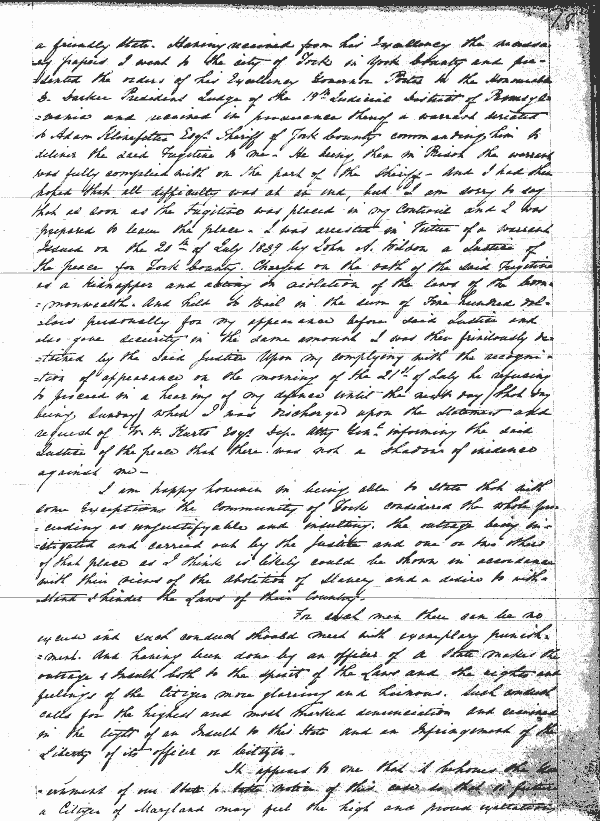 18
a friendly State. Having received from his Excellency the necessa-
ry papers I went to the city of York in York County and pre-
=sented the orders of his Excellency Governor Porter to the Honourable
D. Durkee President Judge of the 19th Judicial District of Pennsyl-
=vania and received in pursuance thereof a warrant directed
to Adam Klinefelter Esqr. Sheriff of York County commanding him to
deliver the said Fugitive to me. He being then in Prison the warrant
was fully complied with on the part of the Sheriff. And I had then
hoped that all difficulty was at an end, but I am sorry to say
that as soon as the Fugitive was placed in my Controul and I was
prepared to leave the place. I was arrested in Virtue of a warrant
Issued on the 20th of July 1839 by John A. Wilson a Justice of
the peace for York County. Charged on the oath of the said Fugitive
as a kidnapper and acting in violation of the laws of the Com-
=monwealth. And held to bail in the sum of Five hundred dol-
=lars personally for my appearance before said Justice and
also gave security in the same amount I was then
by the said Justice Upon my complying with the recogni-
=tion of appearance on the morning of the 21st of July he refusing
to proceed in a hearing of my defence until the next day (that day
being Sunday) when I was discharged upon the statement and
request of W. H. Kurtz Esqr. Dep. Atty Genl. informing the said
Justice of the peace that there was not a shadow of evidence
against me-
I am happy however in being able to State that with
some exceptions the Community of York considered the whole pro-
=ceeding as unjustifyable and insulting. the outrage being in-
=stigated and carried out by the Justice and one or two others
of that place as I think is likely could be shown in accordance
with their views of the abolition of Slavery and a desire to with-
=stand & hinder the Laws of their Country.
For such men there can be no
excuse and such conduct should meet with exemplary punish-
=ment. And having been done by an officer of a State makes the
outrage & Insult both to the spirit of the Laws and the rights and
feelings of the Citizen more glareing and heinous. Such conduct
calls for the highest and most marked denunciation and
in the light of an Insult to this State and an Infringement of the
Liberty of its officer or citizen.
It appears to me that it behooves the Gov-
=ernment of our State to take notice of this case so that in future
a Citizen of Maryland may feel the high and proud